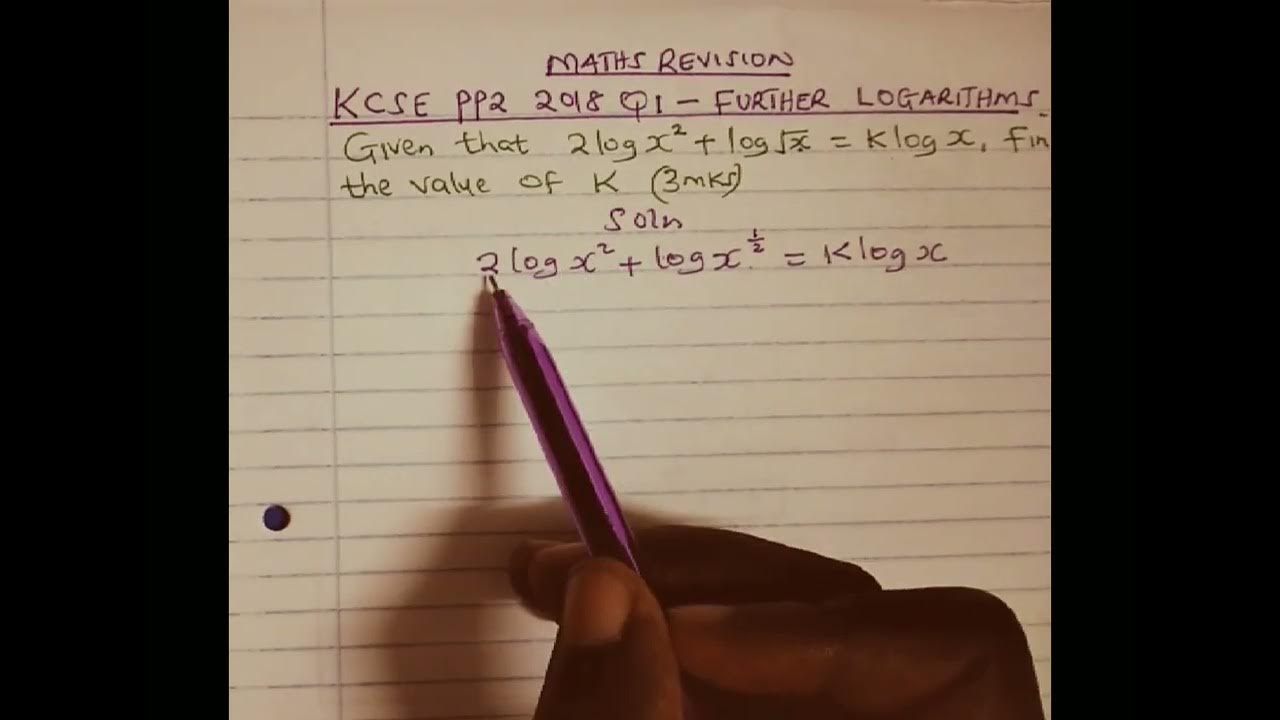 MATHS REVISION
KCSE PP2 2018 Q1 - FURTHER LOGARITHMS.
Given that 2logx² + log√x = Klogx, Fin
the value of K (3mks)
Soln
2logx² + logx^½ = Klogx